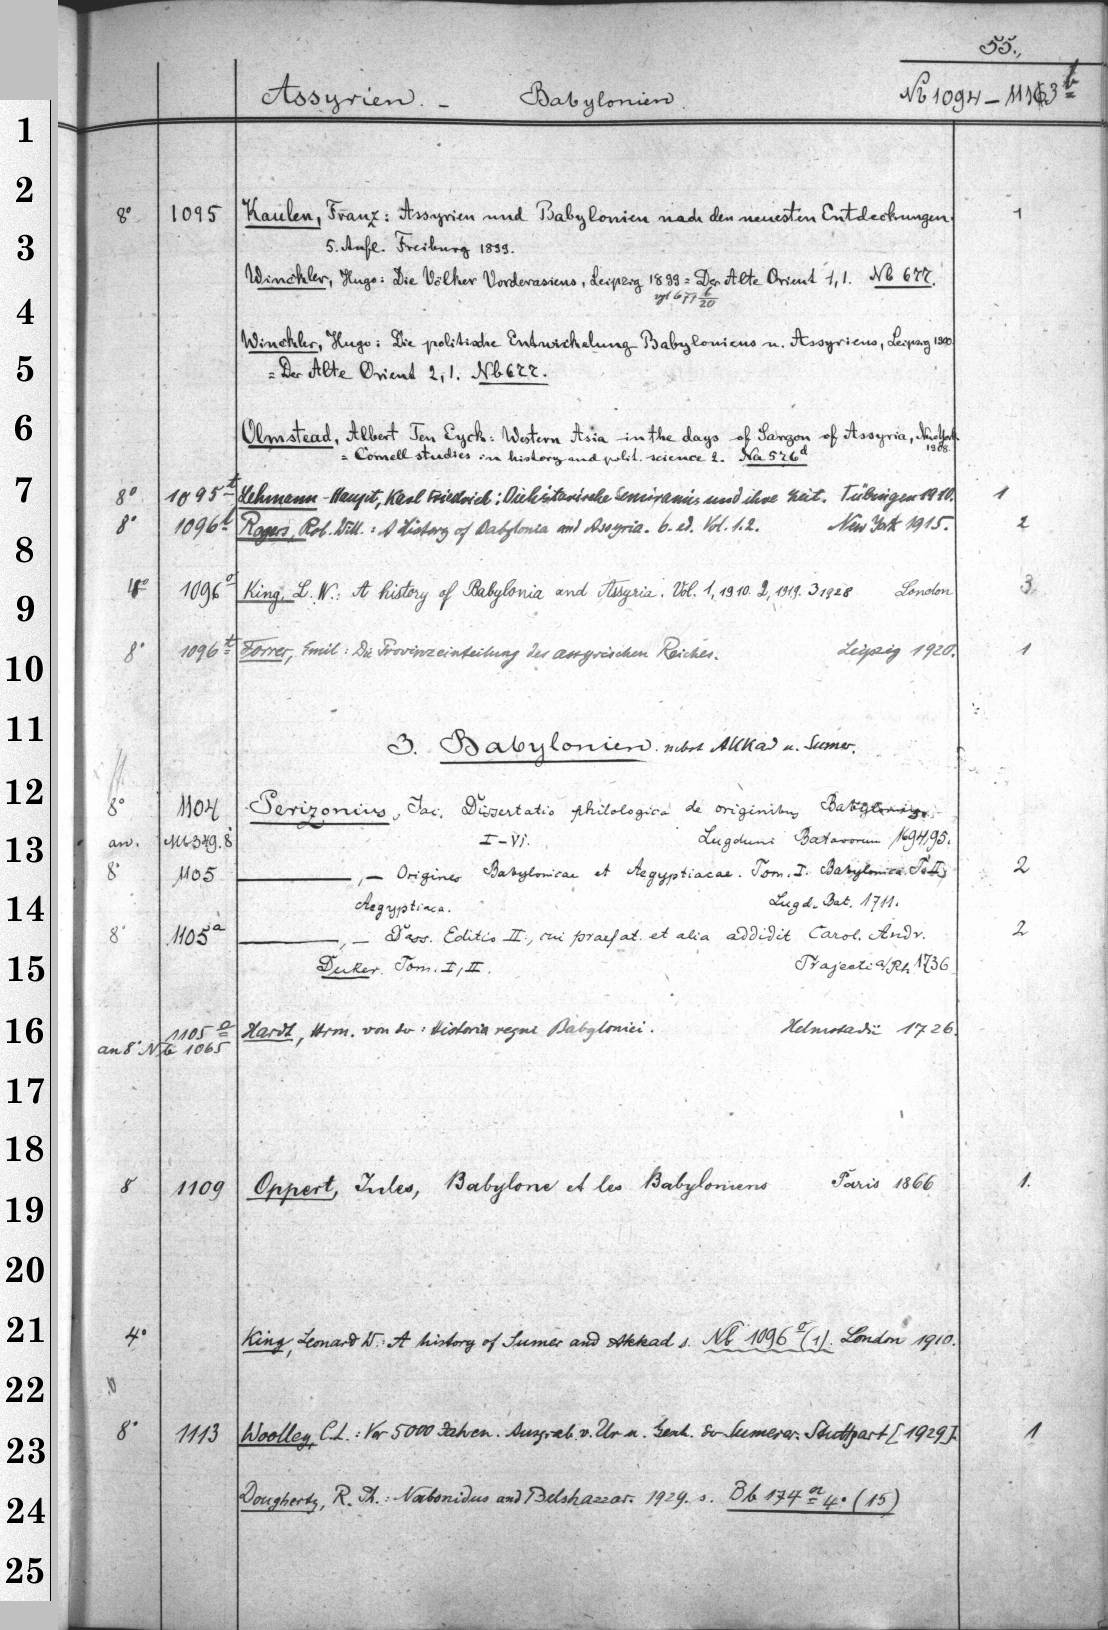 55.
Assyrien. - Babylonien. Nb 1094 - 1113 b
1
2
8° 1095 Kaulen, Franz: Assyrien und Babylonien nach den neuesten Entdeckungen. 1
3 5. Aufl. Freiburg 1899.
Winckler, Hugo: Die Völker Vorderasiens, Leipzig 1899 = Der Alte Orient 1,1. Nb 677.
4
Winckler, Hugo: Die politische Entwickelung Babyloniens u. Assyriens, Leipzig 1900
5 = Der Alte Orient 2,1. Nb 677.
6 Olmstead, Albert Ten Eyck: Western Asia in the days of Sargon of Assyria, New York 1908
= Cornell studies in history and polit. science 2. Na 576 d
7 8° 1095 t Lehmann-Haupt, Karl Friedrich: Die historische Semiramis und ihre Zeit. Tübingen 1910. 1
8° 1096 Rogers, Rob. Will.: A History of Babylonia and Assyria. 6. ed. Vol. 1.2. New York 1915. 2
8
9 4° 1096 o King, L. W.: A history of Babylonia and Assyria. Vol. 1, 1910. 2, 1919. 3 1928 London 3
10 8° 1096 t Forrer, Emil: Die Provinzeinteilung des assyrischen Reiches. Leipzig 1920. 1
11 3. Babylonien. nebst Akkad u. Sumer.
12 8° 1104 Perizonius, Jac. Dissertatio philologica de originibus Babyloniae
13 an. Mb 349. 8° I-VI. Lugduni Batavorum 1694,95.
8° 1105 , - Origines Babylonicae et Aegyptiacae. Tom. I. Babylonica. T. II 2
14 Aegyptiaca. Lugd. Bat. 1711.
8° 1105 a , - Pass. Editio II, cui praefat. et alia addidit Carol. Andr. 2
15 Duker. Tom. I, II. Trajecti a/Rh. 1736
16 1105 Hardt, Hrm. von der: Historia regni Babylonici. Helmstadii 1726.
an 8° Nb 1065
17
18
8 1109 Oppert, Jules, Babylone et les Babyloniens Paris 1866 1.
19
20
21 4° King, Leonard W.: A history of Sumer and Akkad s. Nb 1096 o (1). London 1910.
22
8° 1113 Woolley, C. L.: Vor 5000 Jahren. Ausgrab. v. Ur u. Gesch. der Sumerer. Stuttgart [1929]. 1
23
24 Dougherty, R. Ph.: Nabonidus and Belshazzar. 1929. s. Bb 174 n 4° (15)
25